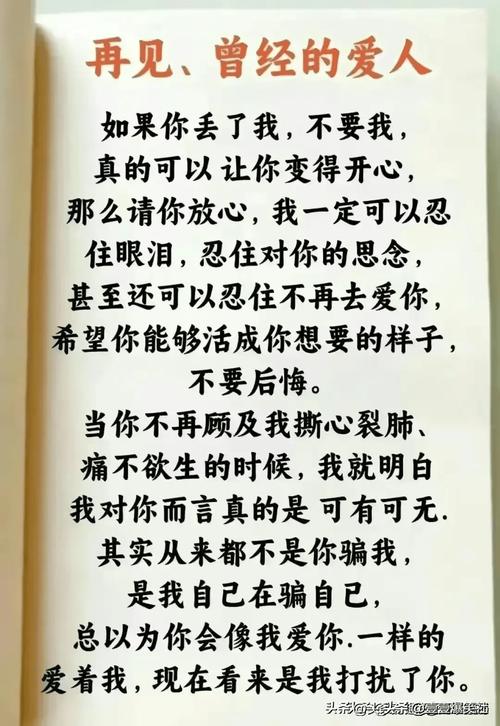 再见、曾经的爱人
如果你丢了我，不要我，
真的可以 让你变得开心，
那么请你放心，我一定可以忍
住眼泪，忍住对你的思念，
甚至还可以忍住不再去爱你，
希望你能够活成你想要的样子，
不要后悔。
当你不再顾及我撕心裂肺、
痛不欲生的时候，我就明白
我对你而言真的是 可有可无.
其实从来都不是你骗我，
是我自己在骗自己，
总以为你会像我爱你.一样的
爱着我，现在看来是我打扰了你。
头条